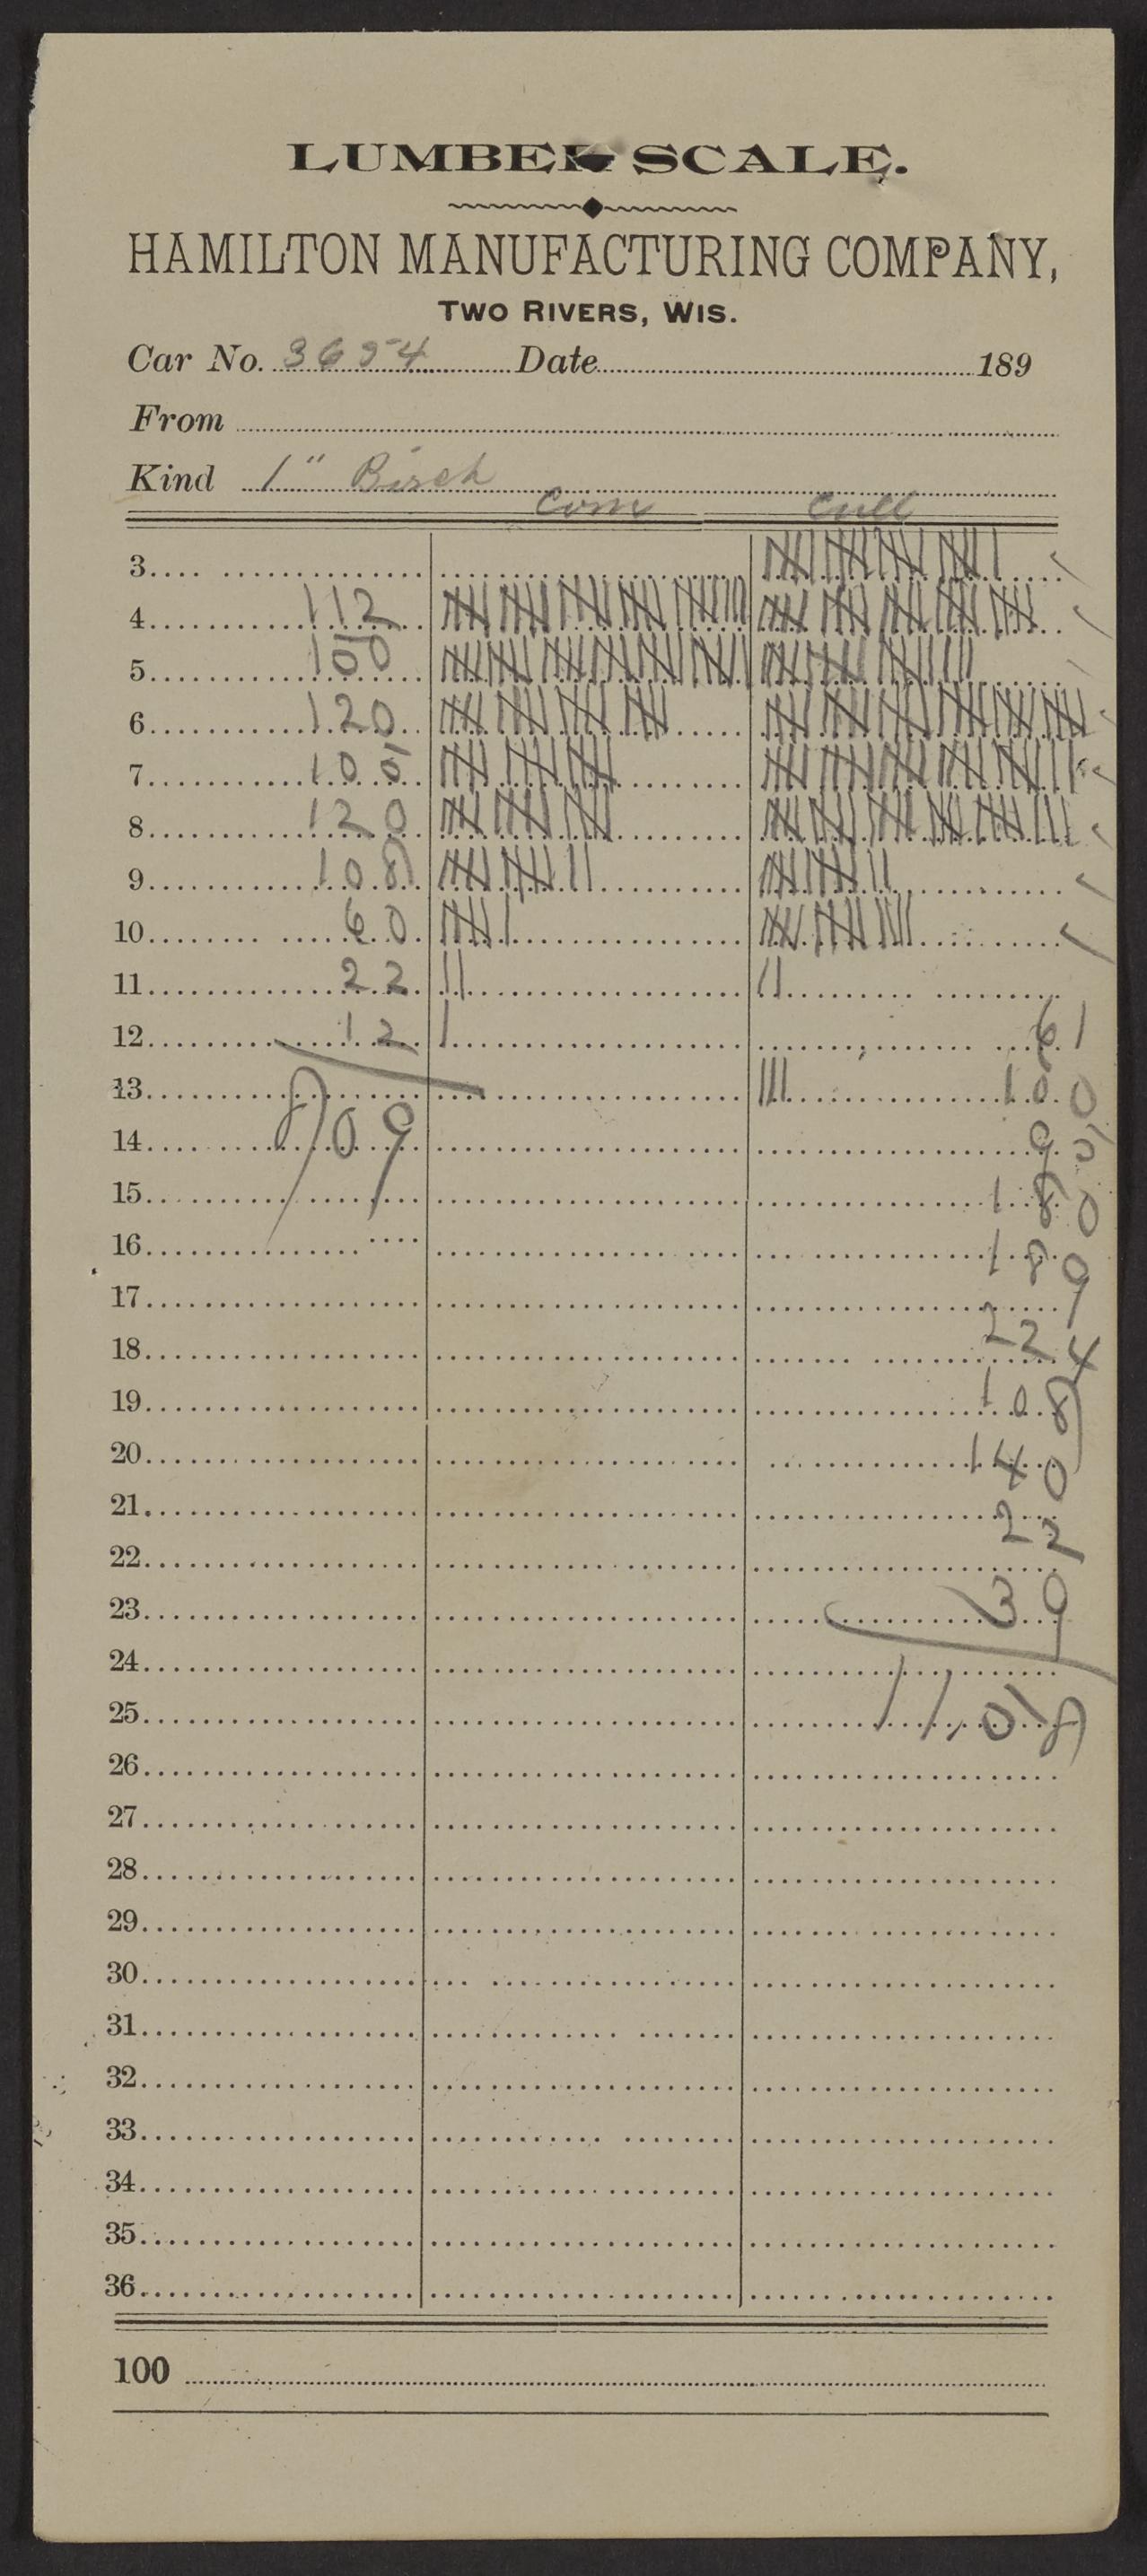 LUMBER SCALE.
HAMILTON MANUFACTURING COMPANY,
TWO RIVERS, WIS.
Car No. 3654 Date 189
From
Kind 1" Birch
Com Cull
3
4 112
5 150
6 120
7 105
8 120
9 108
10 60
11 22
12 12 61
13 100
14 809 95
15 180
16 189
17
18 224
19 108
20 140
21 22
22
23 39
24
25 11,58
26
27
28
29
30
31
32
33
34
35
36
100